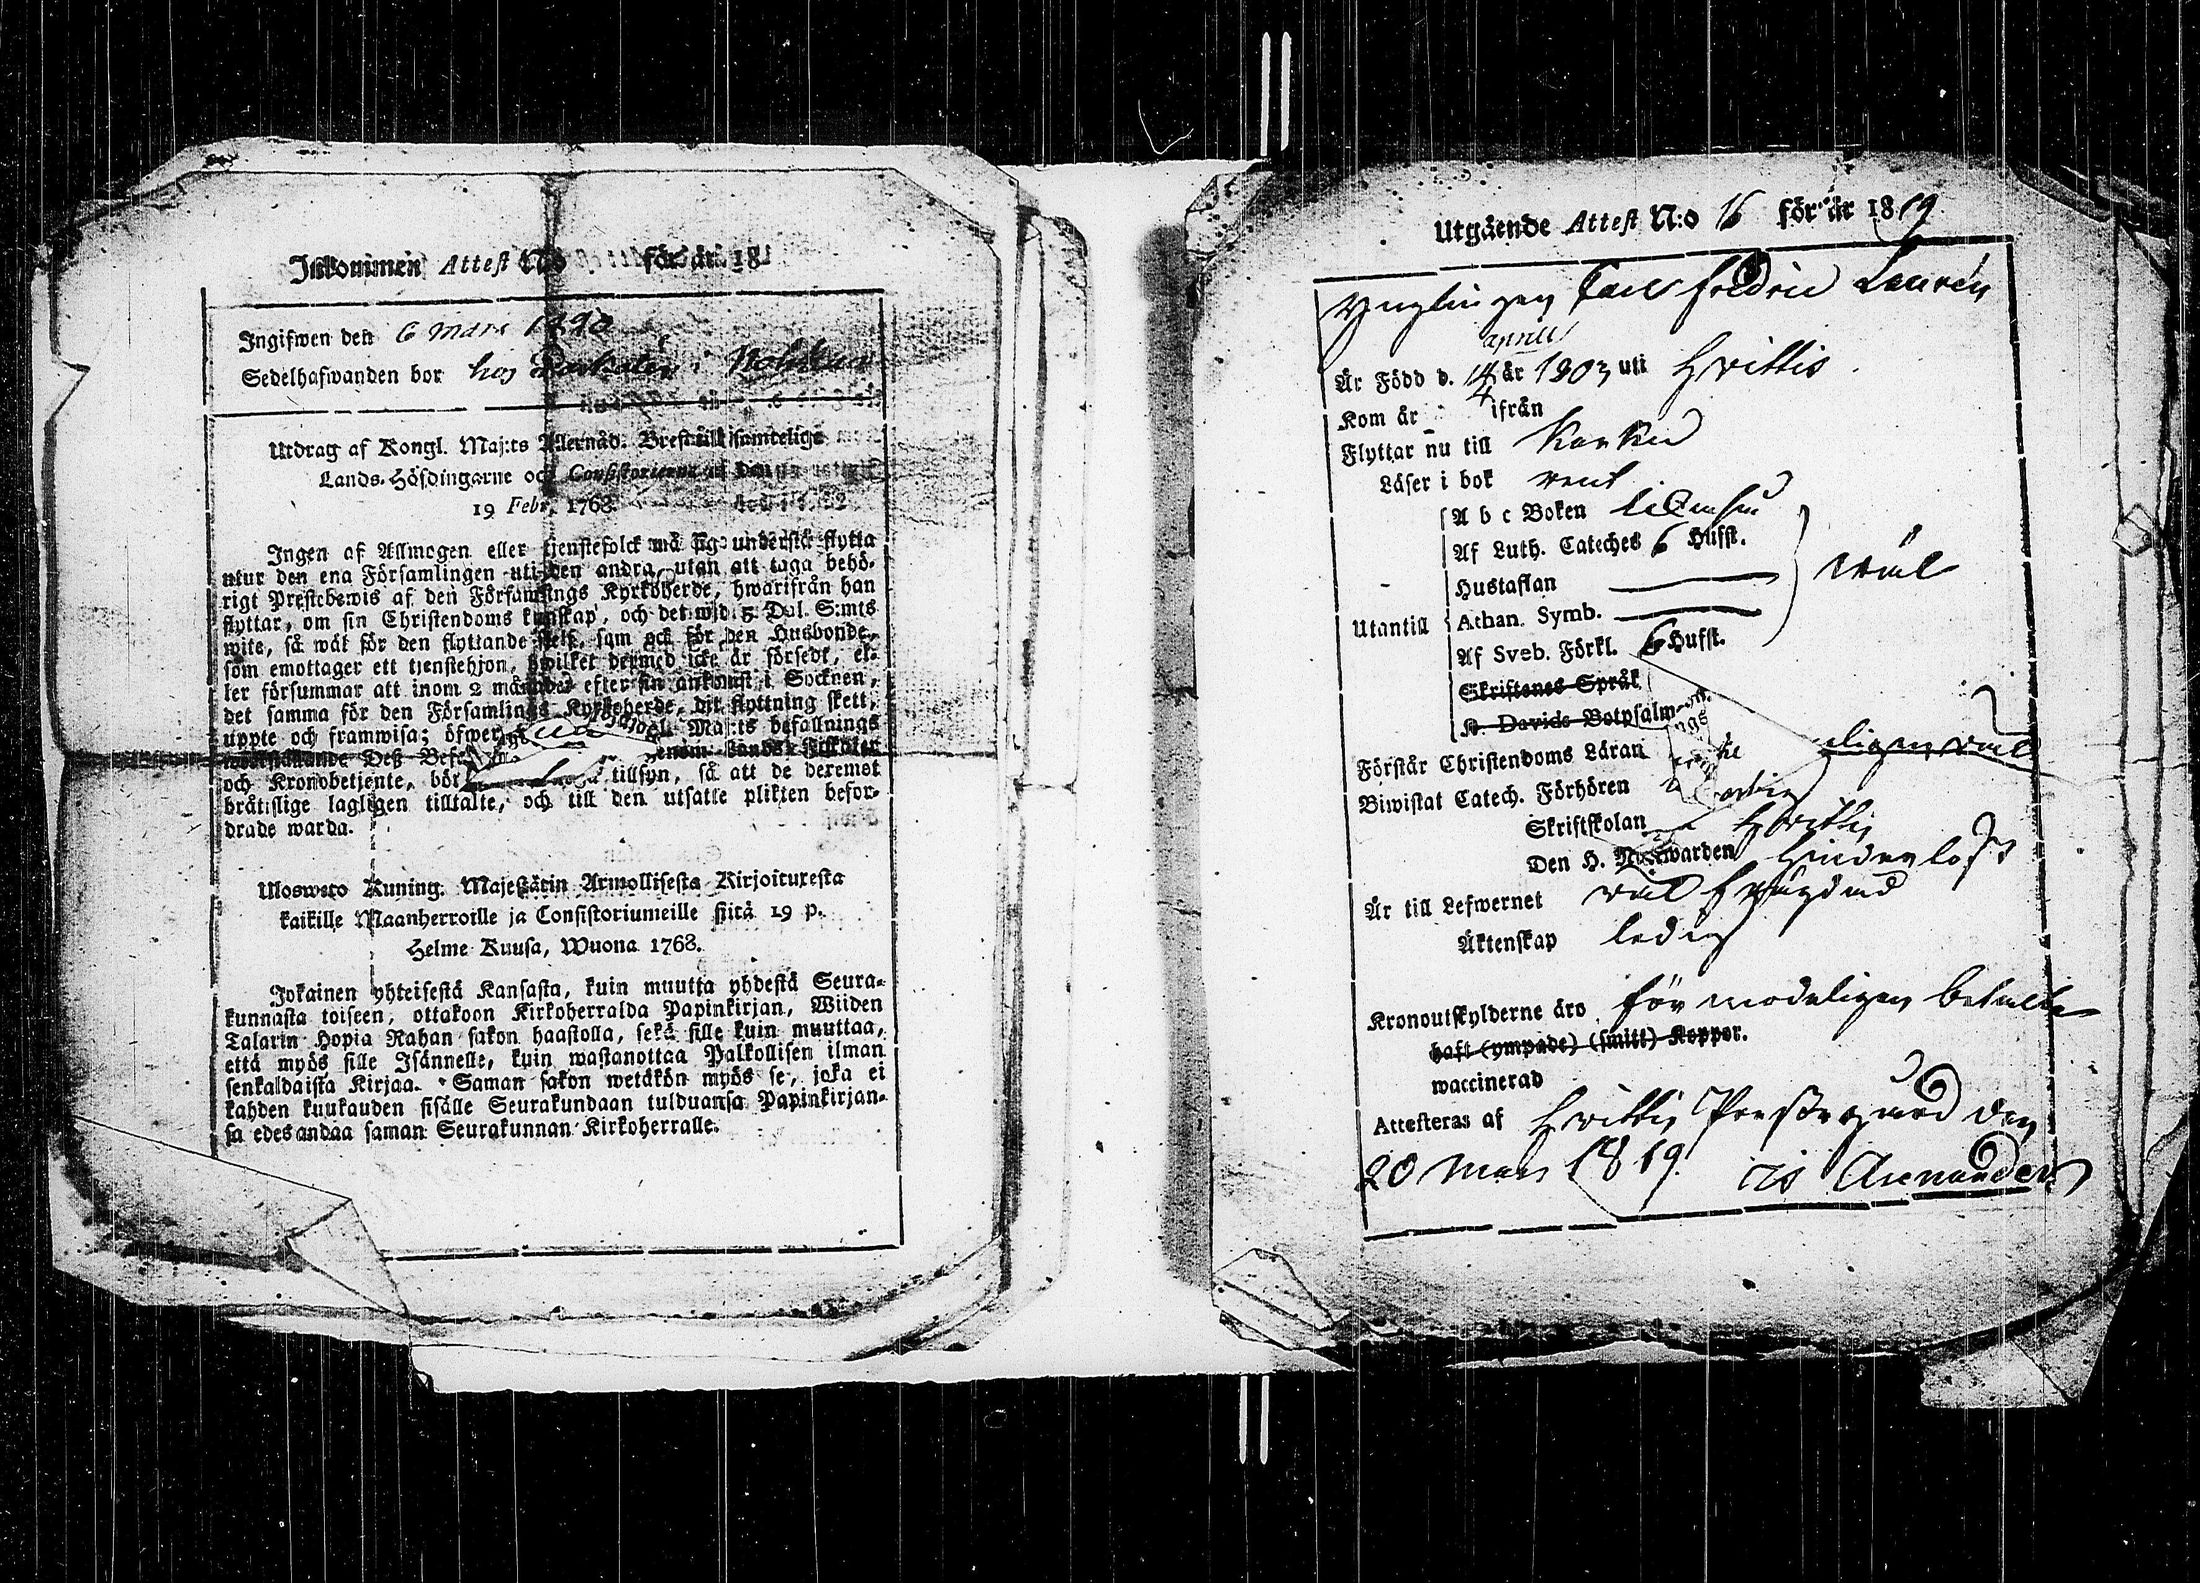 Inkommen Attest N:o för år 18
Ingifwen den 6 Mars
Sedelhafwanden bor hos i
Utdrag af Kongl. Maj:ts Allernåd. Bref till samtelige
Lands-Höfdingarne och Consistorierne af den
19 Febr. 1768.
Ingen af Allmogen eller tjenstefolck må sig understå flytta
utur den ena Församlingen uti den andra, utan att taga behö-
rigt Prestebewis af den Församlings Kyrkoherde, hwarifrån han
flyttar, om sin Christendoms kunskap, och det wid 5 Dal. S:mts
wite, så wäl för den flyttande sielf, som ock för den Husbonde,
som emottager ett tjenstehjon, hwilket dermed icke är försedt, el-
ler försummar att inom 2 månader efter sin ankomst i Socknen,
det samma för den Församlings Kyrkoherde, dit flyttning skett,
uppte och framwisa; öfwer Maj:ts befallnings
werkställande Deß Befa genom Lands-Fiskaler
och Kronobetjente, bör tillsyn, så att de deremot
brätslige lagligen tilltalte, och till den utsatte plikten befor-
drade warda.
Ulosweto Kuning. Majestätin Armollisesta Kirjoituxesta
kaikille Maanherroille ja Consistoriumeille siitä 19 p.
Helme Kuusa, Wuona 1768.
Jokainen yhteisestä Kansasta, kuin muutta yhdestä Seura-
kunnasta toiseen, ottakoon Kirkoherralda Papinkirjan, Wiiden
Talarin Hopia Rahan sakon haastolla, sekä sille kuin muuttaa,
että myös sille Isännelle, kuin wastanottaa Palkollisen ilman
senkaldaista Kirjaa. Saman sakon wetäkön myös se, joka ei
kahden kuukauden sisälle Seurakundaan tulduansa Papinkirjan-
sa edesandaa saman Seurakunnan Kirkoherralle.
Utgående Attest N:o 16 för år 1819
Ynglingen Carl Fredric Laurén
aprill
Är Född d. 14/4 år 1803 uti Hvittis
Kom år ifrån
Flyttar nu till Karkku
Läser i bok rent
A b c Boken
Af Luth. Cateches 6 Hufst.
Hustaflan
Utantill Athan. Symb. wäl
Af Sveb. Förkl. 6 Hufst.
Skriftenes Språk
K. Davids Botpsalm
Förstår Christendoms Läran
Biwistat Catech. Förhören
Skriftskolan Hvittis
Den H. Nattwarden Hinderlöst
Är till Lefwernet wäl frägdad
Äktenskap ledig
Kronoutskylderne äro förmodeligen betalte
haft (ympade) (smitt) Koppor.
waccinerad
Attesteras af Hvittis Prestegård den
20 Mars 1819.